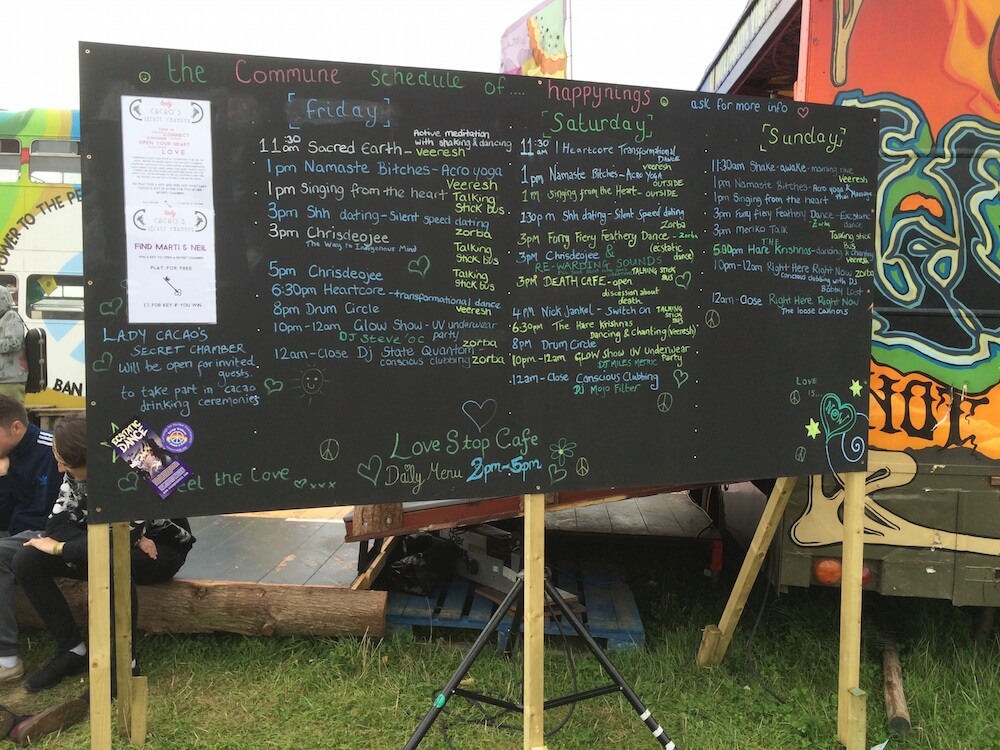 the Commune schedule of.... happynings
ask for more info
Lady
CACAO'S
SECRET CHAMBER
CONNECT
OPEN YOUR HEART
LOVE
Lady
CACAO'S
SECRET CHAMBER
FIND MARTI & NEIL
PLAY FOR FREE
£5 FOR KEY IF YOU WIN
LADY CACAO'S
SECRET CHAMBER
Will be open for invited
guests.
to take part in 'cacao
drinking ceremonies
ECSTATIC
DANCE
eel the Love xxx
[Friday]
11:30 am Sacred Earth - Veeresh Active meditation with shaking & dancing
1pm Namaste Bitches - Acro yoga
1pm Singing from the heart Veeresh
Talking
Stick bus
3pm Shh dating - Silent speed dating
zorba
3pm Chrisdeojee
The Way to Indigenous Mind
Talking
Stick bus
5pm Chrisdeojee
Talking
Stick bus
6:30pm Heartcore - transformational dance
8pm Drum Circle
veeresh
10pm-12am Glow Show - UV underwear
party
DJ Steve 'OC
zorba
12am - Close Dj State Quantom -
conscious clubbing zorba
[Saturday]
11:30 am Heartcore Transformational
DANCE
1pm Namaste Bitches - Acro Yoga
veeresh
OUTSIDE
1pm Singing from the Heart - OUTSIDE
1:30pm Shh dating - Silent Speed dating
Zorba
3pm Furry Fiery Feathery Dance - Zorba
(ecstatic
dance)
3pm Chrisdeojee &
RE-WARDING SOUNDS
TALKING STICK
BUS
3pm DEATH CAFE - open
discussion about
death
4pm Nick Jankel - Switch on
TALKING
STICK
BUS
6:30pm The Hare Krishnas
Dancing & chanting (veeresh)
8pm Drum Circle
10pm-12am GLOW SHOW UV Underwear
Party
DJ MILES METRIC
12am - Close Conscious Clubbing
DJ Mojo Filter
[Sunday]
11:30am Shake-awake - morning rave
Veeresh
1pm Namaste Bitches - Acro yoga &
1pm Singing from the heart
3pm Furry Fiery Feathery Dance - Excstatic
Dance
Zorba
3pm meriko Talk
Talking stick
bus
THE
5:00pm Hare Krishnas - dancing & chanting
veeresh
10pm-12am Right Here Right Now zorba
conscious clubbing with DJ
Bobby Lost
12am - Close Right Here Right Now
The loose
Love Stop Cafe
Daily Menu 2pm-5pm
Love
is...
POWER TO THE PE
BAN
NOT